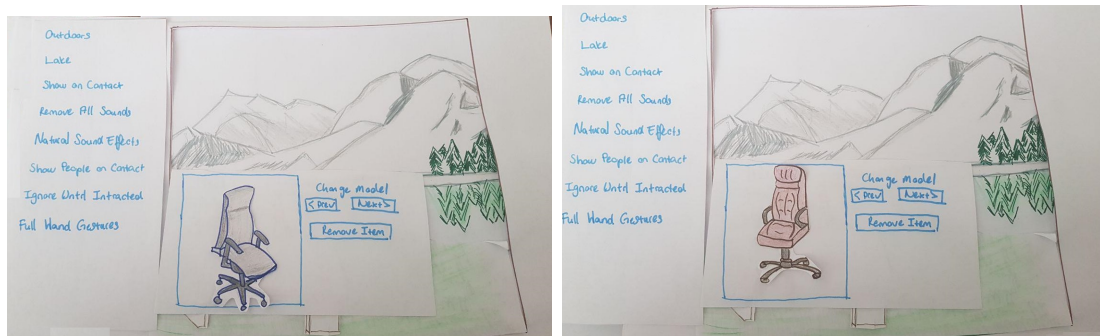 Outdoors
Lake
Show on Contact
Remove All Sounds
Natural Sound Effects
Show People on Contact
Ignore Until Intracted
Full Hand Gestures
Change Model
<Prev Next>
Remove Item
Outdoors
Lake
Show on Contact
Remove All Sounds
Natural Sound Effects
Show People on Contact
Ignore Until Intracted
Full Hand Gestures
Change Model
<Prev Next>
Remove Item